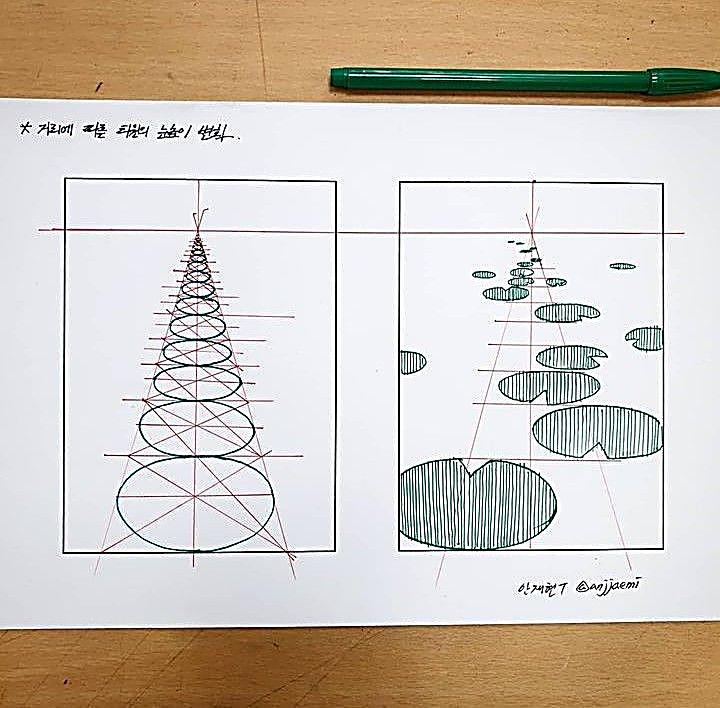 * 거리에 따른 타원의 눈높이 변화.
안재현T @anjjaemi